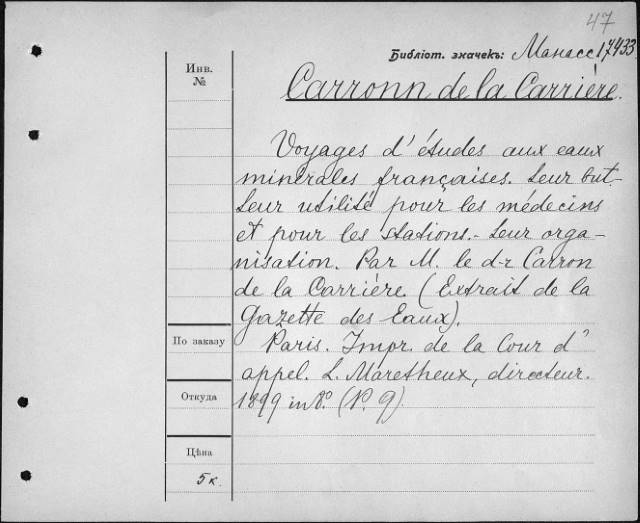 47
Библіот. значекъ: Манассе 17433
Инв.
№
Carronn de la Carrière.
Voyages d'études aux eaux
minérales françaises. Leur but.-
Leur utilité pour les médecins
et pour les stations.- Leur orga-
nisation. Par M. le d-r Carron
de la Carrière. (Extrait de la
Gazette des Eaux).
По заказу
Paris. Impr. de la Cour d'
appel. L. Maretheux, directeur.
Откуда
1899 in 8°. (P. 9)
Цѣна
5 к.